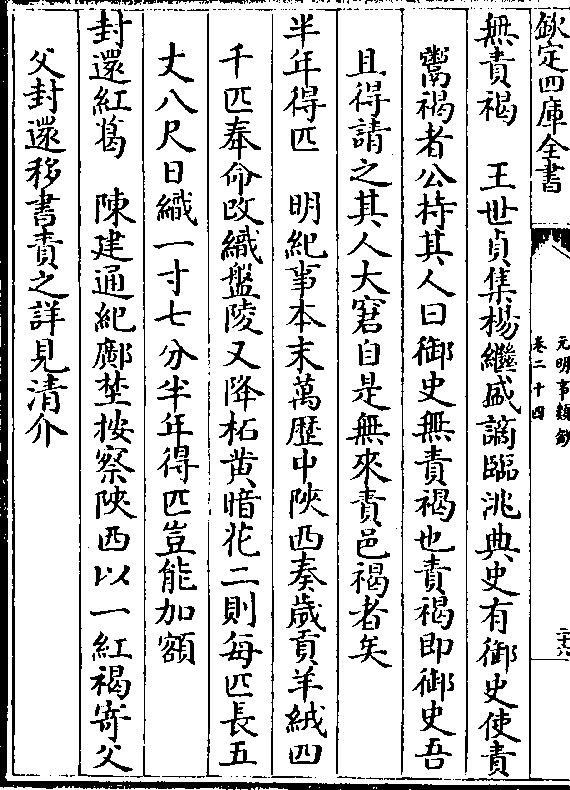 欽定四庫全書
元明事類鈔
卷二十四
二十六
無責褐　王世貞集楊繼盛謫臨洮典史有御史使責
鬻褐者公持其人曰御史無責褐也責褐即御史吾
且得請之其人大窘自是無來責邑褐者矣
半年得匹　明紀事本末萬歷中陜西奏歲貢羊絨四
千匹奉命改織盤陵又降柘黄暗花二則每匹長五
丈八尺日織一寸七分半年得匹豈能加額
封還紅葛　陳建通紀鄺埜按察陜西以一紅褐寄父
父封還移書責之詳見清介